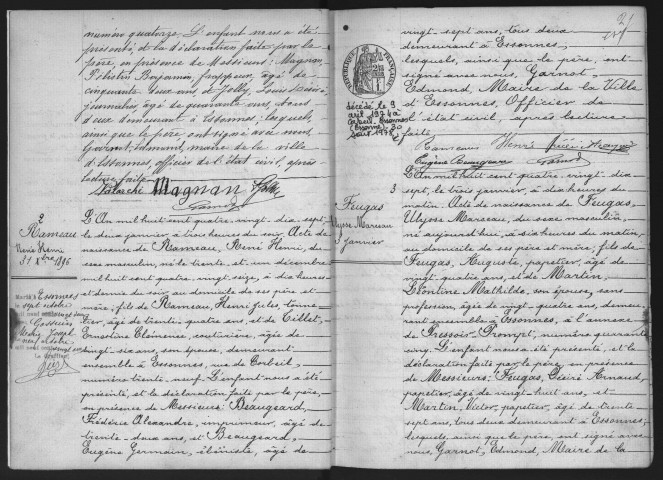 numéro quatorze. L'enfant nous a été
présenté, et la déclaration faite par le
père, en présence de Messieurs: Magnan,
Philistin Benjamin, frappeur, âgé de
cinquante deux ans, et Jolly, Louis
journalier, âgé de quarante ans, tous
deux demeurant à Essonnes; lesquels,
ainsi que le père, ont signé avec nous
Garnot, Edmond, maire de la ville
d'Essonnes, officier de l'état civil, après
lecture faite.
Magnan
Garnot
2
Rameau
René Henri
31 Xbre 1896
Marié à Essonnes
L'An mil huit cent quatre vingt dix sept,
le deux janvier à trois heures du soir, Acte de
naissance de Rameau, René Henri, du
sexe masculin, né le trente et un décembre
mil huit cent quatre vingt seize, à dix heures
et demie du soir au domicile de ses père et
mère, fils de Rameau, Henri Jules, tonne-
lier, âgé de trente quatre ans, et de Tillet,
Ernestine Clémence, couturière, âgée de
vingt-six ans, son épouse, demeurant
ensemble à Essonnes, rue de Corbeil,
numéro trente neuf. L'enfant nous a été
présenté, et la déclaration faite par le père,
en présence de Messieurs: Beaugeard,
Frédéric Alexandre, imprimeur, âgé de
trente-deux ans, et Beaugeard,
Eugène Germain, ébéniste, âgé de
vingt sept ans, tous deux
demeurant à Essonnes;
lesquels, ainsi que le père, ont
signé avec nous, Garnot,
Edmond, Maire de la Ville
d'Essonnes, Officier de
l'état civil, après lecture
faite.
RÉPUBLIQUE FRANÇAISE
décédé le 9
avril 1974 à
Corbeil-Essonnes
(Essonne)
Rameau Henri
Garnot
3
Feugas
Ulysse Marceau
3 janvier
L'An mil huit cent quatre vingt dix
sept, le trois janvier, à dix heures du
matin. Acte de naissance de Feugas,
Ulysse Marceau, du sexe masculin,
né aujourd'hui, à dix heures du matin,
au domicile de ses père et mère, fils de
Feugas, Auguste, papetier, âgé de
vingt quatre ans, et de Martin,
Léontine Mathilde, son épouse, sans
profession, âgée de vingt-quatre ans, demeu-
rant ensemble à Essonnes, à l'annexe
de Pressoir-Prompt, numéro quarante
cinq. L'enfant nous a été présenté, et la
déclaration faite par le père, en présence
de Messieurs: Feugas, Désiré Arnaud,
papetier, âgé de vingt huit ans, et
Martin, Victor, papetier, âgé de trente
sept ans, tous deux demeurant à Essonnes;
lesquels, ainsi que le père, ont signé avec
nous, Garnot, Edmond, Maire de la